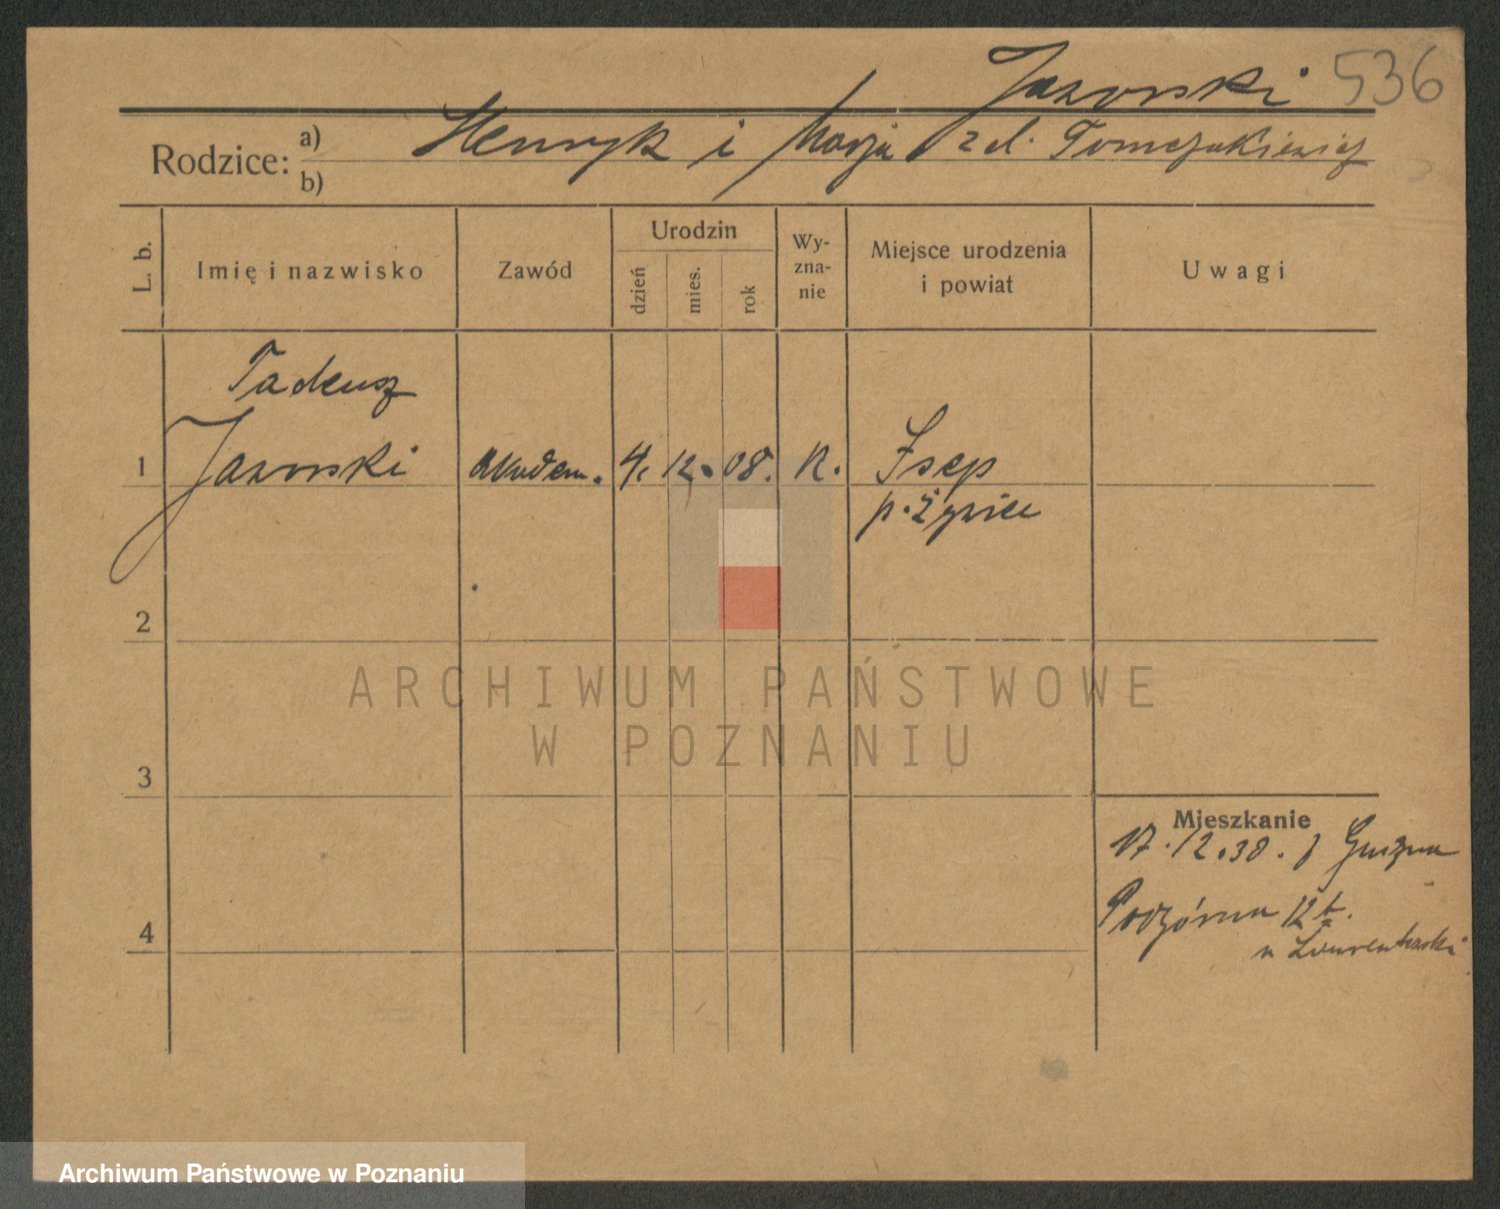 Jaworski 536
Rodzice: a) Henryk i Marja z d. Tomczukiewicz
b)
L. b.
Imię i nazwisko
Zawód
Urodzin
dzień
mies.
rok
Wy-
zna-
nie
Miejsce urodzenia
i powiat
Uwagi
Tadeusz
1 Jaworski akadem. 4. 12. 08. R.
p.
2
ARCHIWUM PAŃSTWOWE
W POZNANIU
3
Mieszkanie
17.12.30. z
4 Podgórna 12
u
Archiwum Państwowe w Poznaniu